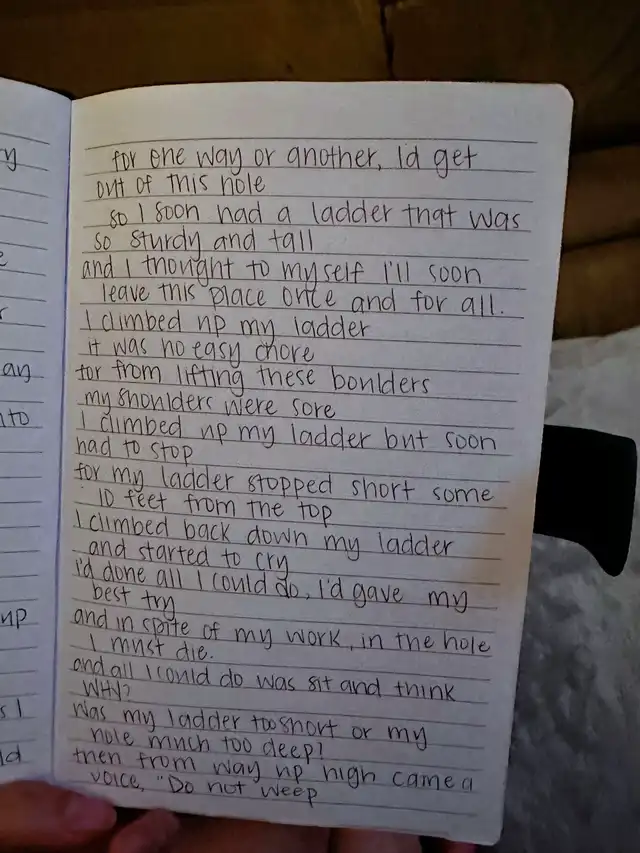 y
for one way or another, I'd get
out of this hole
so I soon had a ladder that was
so sturdy and tall
and I thought to myself I'll soon
leave this place once and for all.
I climbed up my ladder
it was no easy chore
for from lifting these boulders
my shoulders were sore
an
nto
I climbed up my ladder but soon
had to stop
for my ladder stopped short some
10 feet from the top
I climbed back down my ladder
and started to cry
i'd done all I could do, I'd gave my
best try
up
and in spite of my work, in the hole
I must die.
and all I could do was sit and think
WHY?
s I
ld
Was my ladder too short or my
hole much too deep?
then from way up high came a
voice, "Do not weep